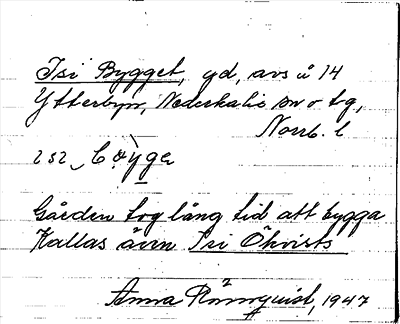 Isi Bygget, gd, avs å 14
Ytterbyn, Nederkalix sn o tg,
Norrb. l
ɪsɪ
Gården tog lång tid att bygga
Kallas även Isi Öhvists
Anna Rönnquist, 1947